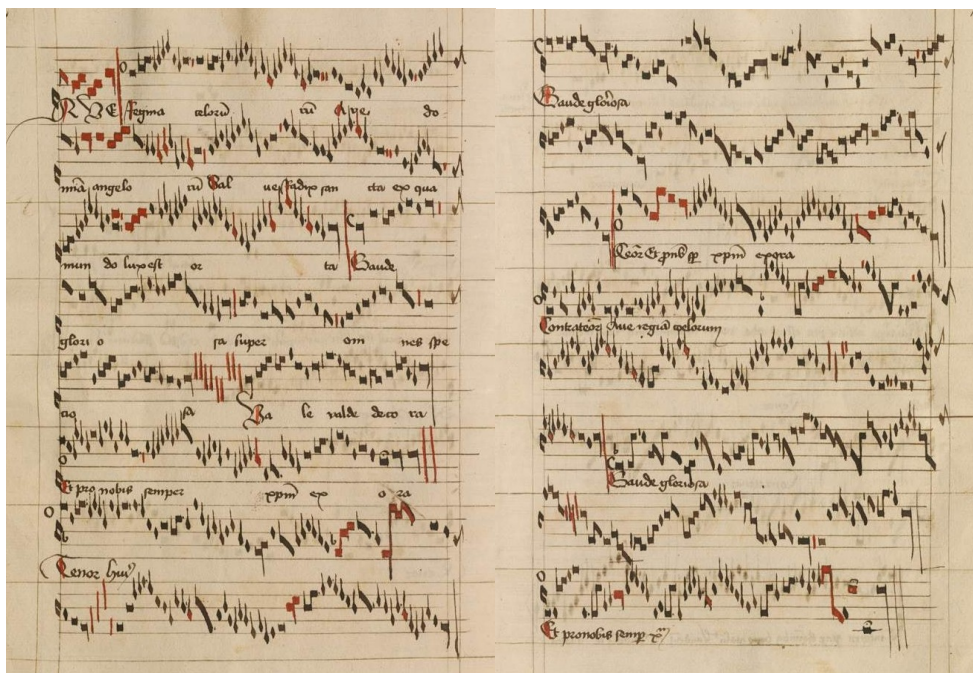 AVE Regina celorū rū Ave do
minā angelo rū Sal ve Radix san cta ex qua
mun do lux est or ta Gaude
glori o sa super om nes spe
cio sa Va le valde deco ra
Et pro nobis semper xpm̄ ex o ra
Tenor hui9
Gaude gloriosa
Teor Et pro nb sp xpm̄ exora
Contrateor Ave regia celorum
Gaude gloriosa
Et pro nobis semp